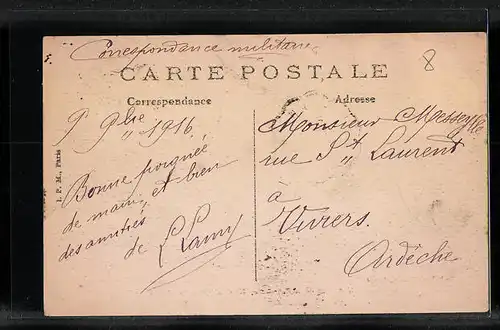 Correspondance militaire
8
CARTE POSTALE
Correspondance
Adresse
9 9bre 1916
Bonne poignée
de main, et bien
des amitiés
de L Lamy
Monsieur
rue St Laurent
à
Viviers.
Ardèche
I. P. M., Paris